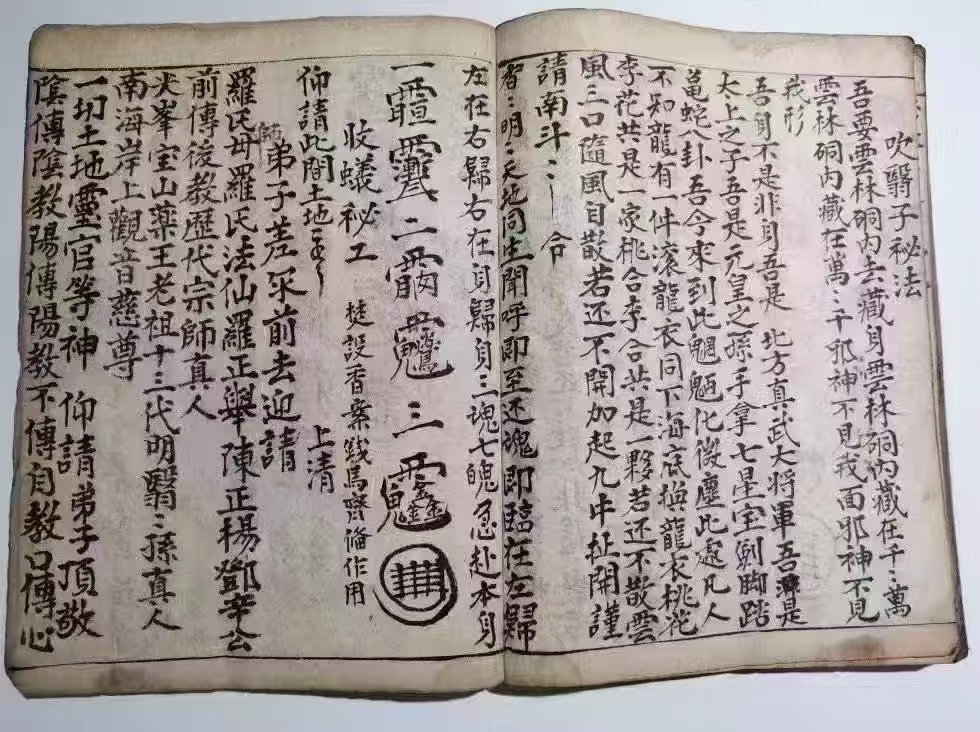 吹翳子秘法
吾要雲林硐内去藏身雲林硐内藏在千〻萬
雲林硐内藏在萬〻千邪神不見我面邪神不見
我形
吾身不是非身吾是 北方真武大将軍吾是
太上之子吾是元皇之孫手拿七星宝剣脚踏
亀蛇八卦吾今來到此魍魎化微塵此處凡人
不知龍有一件滚龍衣同下海底換龍衣桃花
李花共是一家桃合李合共是一夥若還不散雲
風三口隨風自散若还不開加起九牛扯開謹
請南斗〻〻 合
智〻明〻天地同生聞呼即至还魂即臨在左歸
左在右歸右在身歸身三魂七魄急赴本身
一 二 三
收蟻秘工 焚設香案錢馬齋俻作用
仰請此間土地 上清
師弟子差承前去迎請
羅民母羅民法仙羅正舉陳正楊鄧辛公
前傳後教歷代宗師真人
火峯宝山藥王老祖十三代明醫〻孫真人
南海岸上觀音慈尊
一切土地靈官等神 仰請弟子頂敬
陰傳陰教陽傳陽教不傳自教口傳心